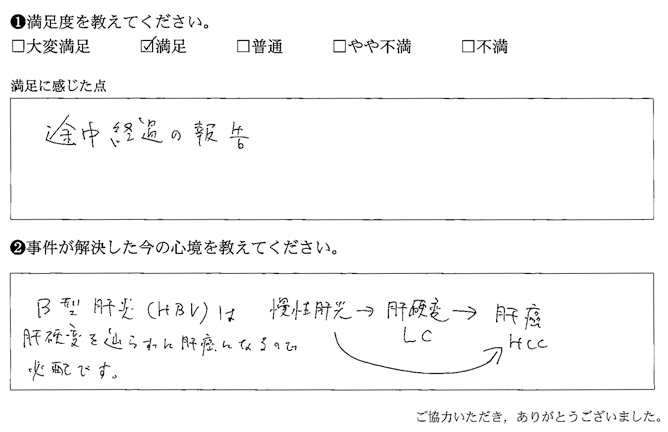 ❶満足度を教えてください。
□大変満足 ☑満足 □普通 □やや不満 □不満
満足に感じた点
途中経過の報告
❷事件が解決した今の心境を教えてください。
B型肝炎(HBV)は 慢性肝炎→肝硬変→肝癌
LC HCC
肝硬変を辿らずに肝癌になるので
心配です。
ご協力いただき，ありがとうございました。